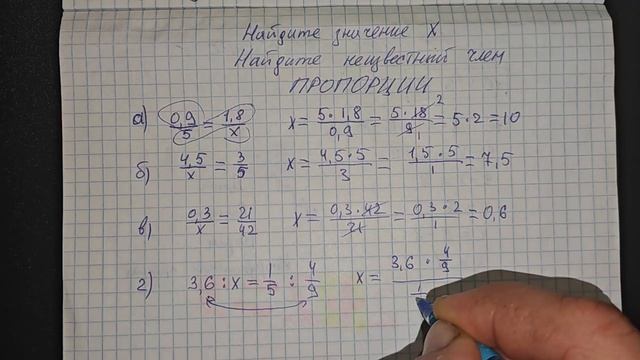 Найдите значение X
Найдите неизвестный член
ПРОПОРЦИИ
а) 0,9/5 = 1,8/x x = 5·1,8/0,9 = 5·18/9 2 1 = 5·2 = 10
б) 4,5/x = 3/5 x = 4,5·5/3 = 1,5·5/1 = 7,5
в) 0,3/x = 21/42 x = 0,3·42/21 = 0,3·2/1 = 0,6
г) 3,6 : x = 1/5 : 4/9 x = 3,6 · 4/9 / 1